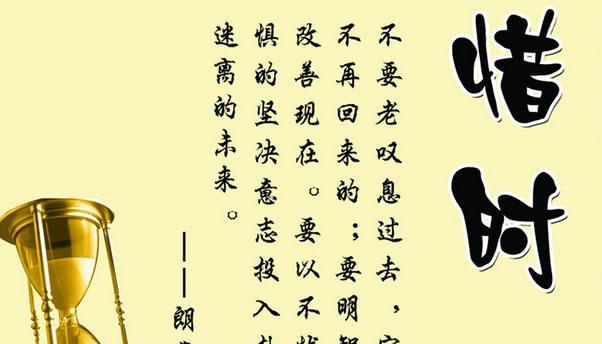 惜时
不要老叹息过去，
不再回来的；要明
改善现在。要以不
惧的坚决意志投入
迷离的未来。
——朗